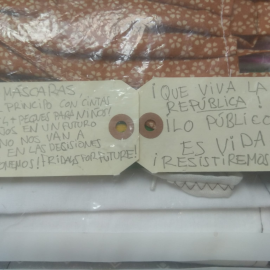 MÁSCARAS,
PRINCIPIO CON CINTAS
4 + PEQUES PARA NIÑOS!
EN UN FUTURO
NO NOS VAN A
EN LAS DECISIONES
FRIDAYS FOR FUTURE!
¡QUE VIVA LA
REPÚBLICA!
¡LO PÚBLICO
ES VIDA
¡RESISTIREMOS